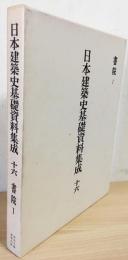 書院 I
日本建築史基礎資料集成 十六
日本建築史基礎資料集成
十六
書院 I